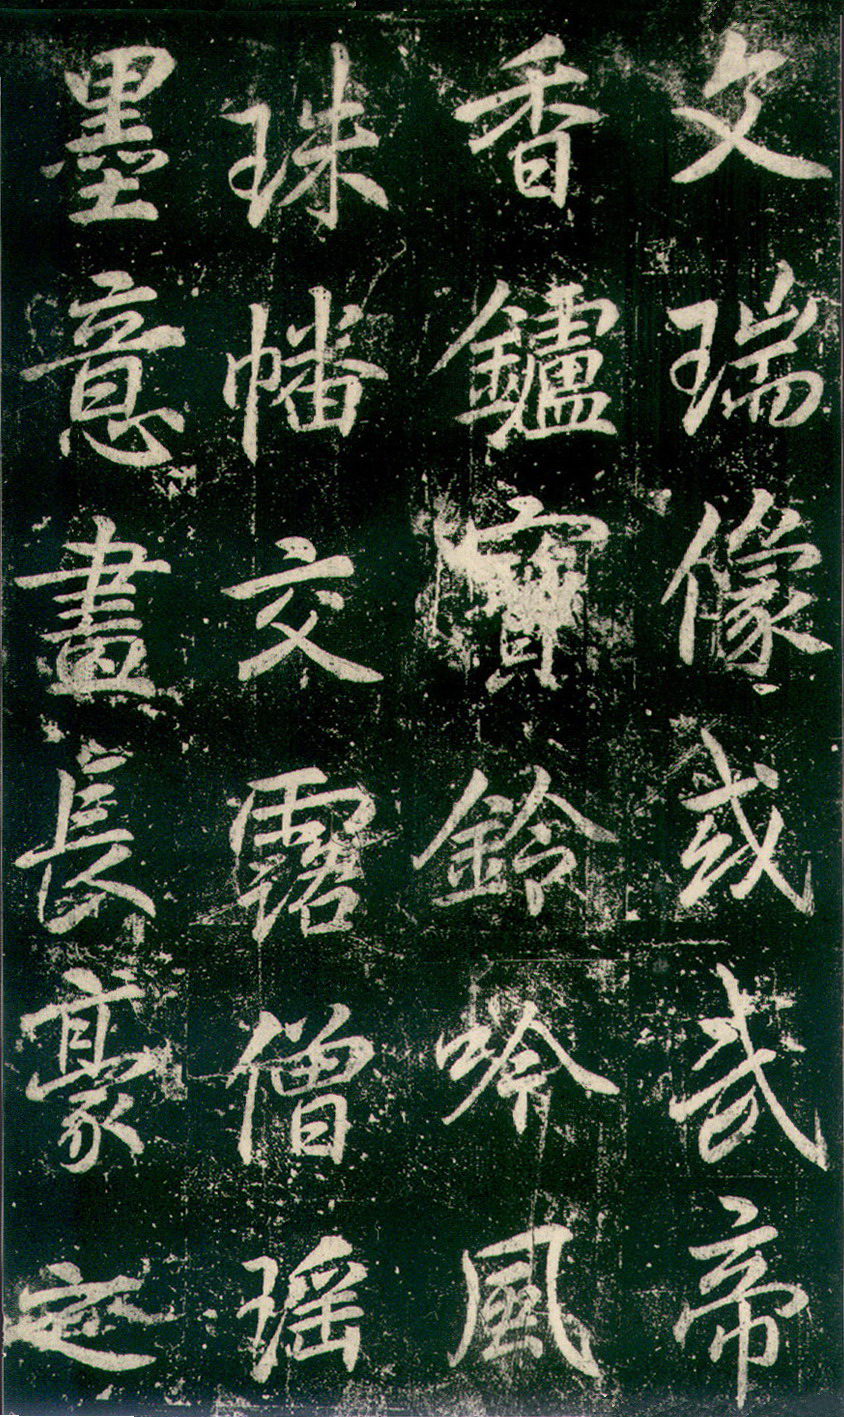 文瑞像或武帝
香鑪寶鈴吟風
珠幡交露僧瑤
墨意畫長豪